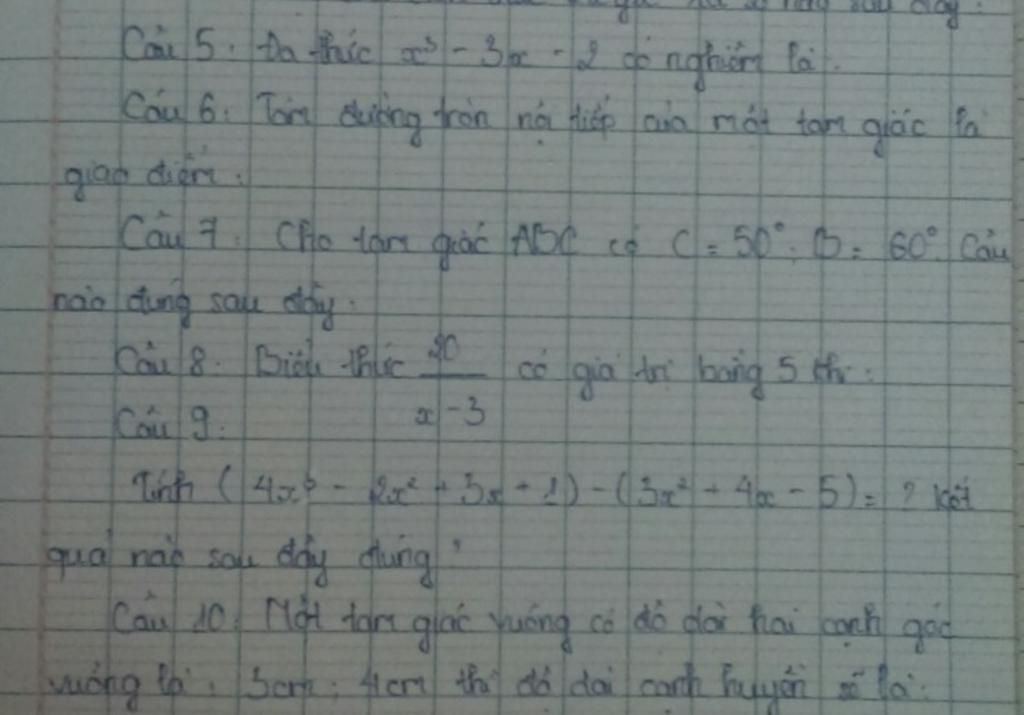 sau đây.
Câu 5: Đa thức x³ - 3x - 2 có nghiệm là:
Câu 6: Tâm đường tròn nội tiếp của một tam giác là
giao điểm:
Câu 7: Cho tam giác ABC có C = 50°; B = 60°. Câu
nào đúng sau đây:
Câu 8: Biểu thức 30/(x - 3) có giá trị bằng 5 thì:
Câu 9:
Tính (4x³ - 2x² + 3x + 1) - (3x² + 4x - 5) = ? Kết
quả nào sau đây đúng?
Câu 10: Một tam giác vuông có độ dài hai cạnh góc
vuông là: 3cm; 4cm thì độ dài cạnh huyền sẽ là: